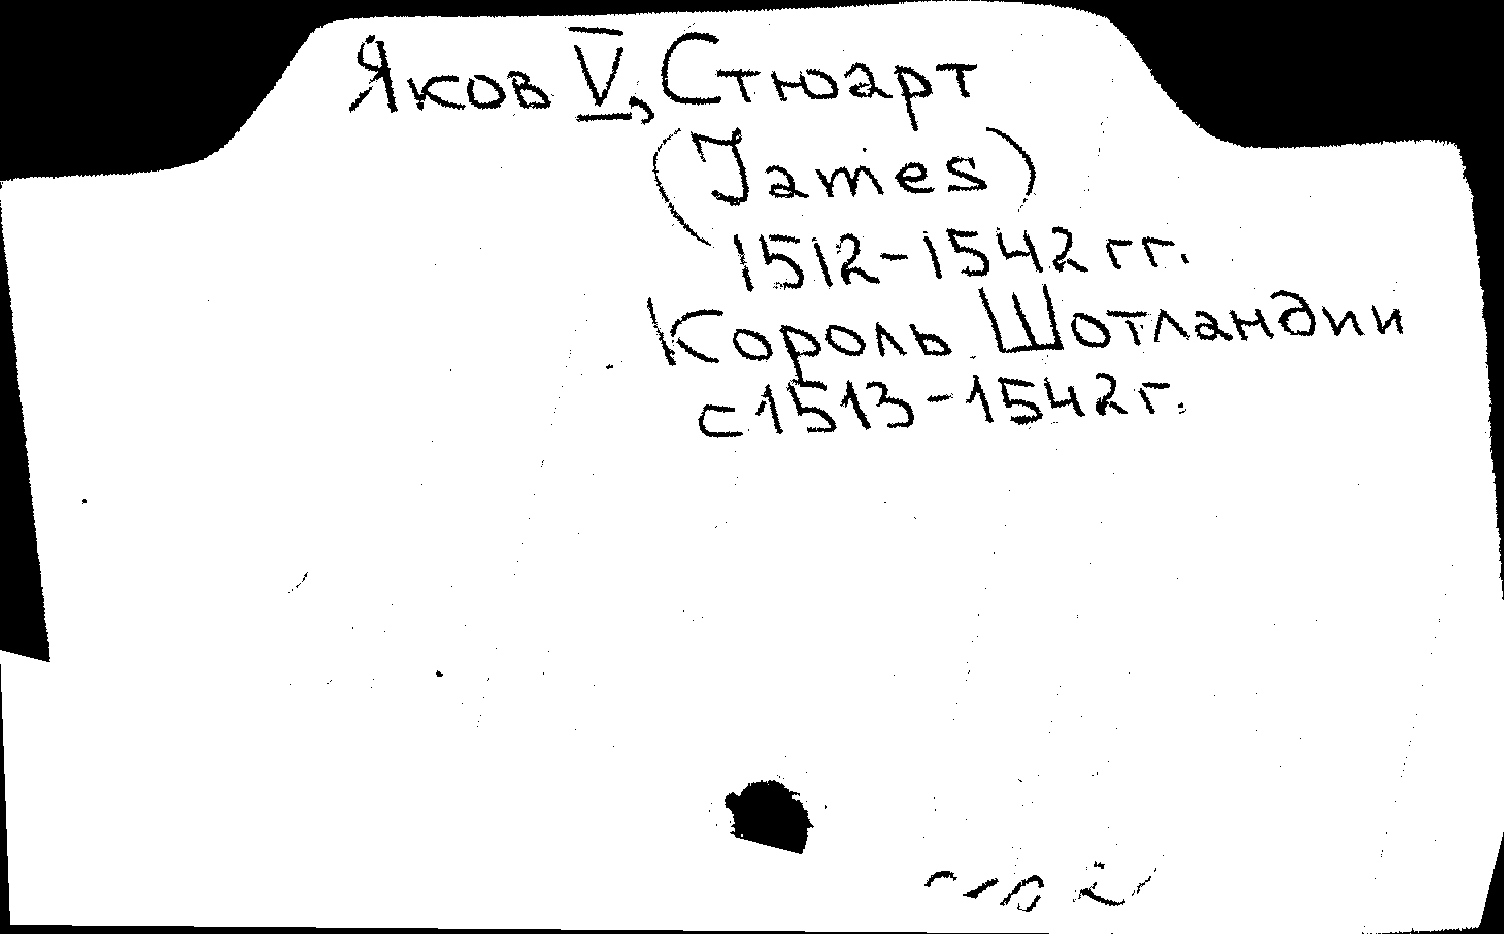 Яков V, Стюарт
(James)
1512-1542 гг.
Король Шотландии
с 1513-1542 г.